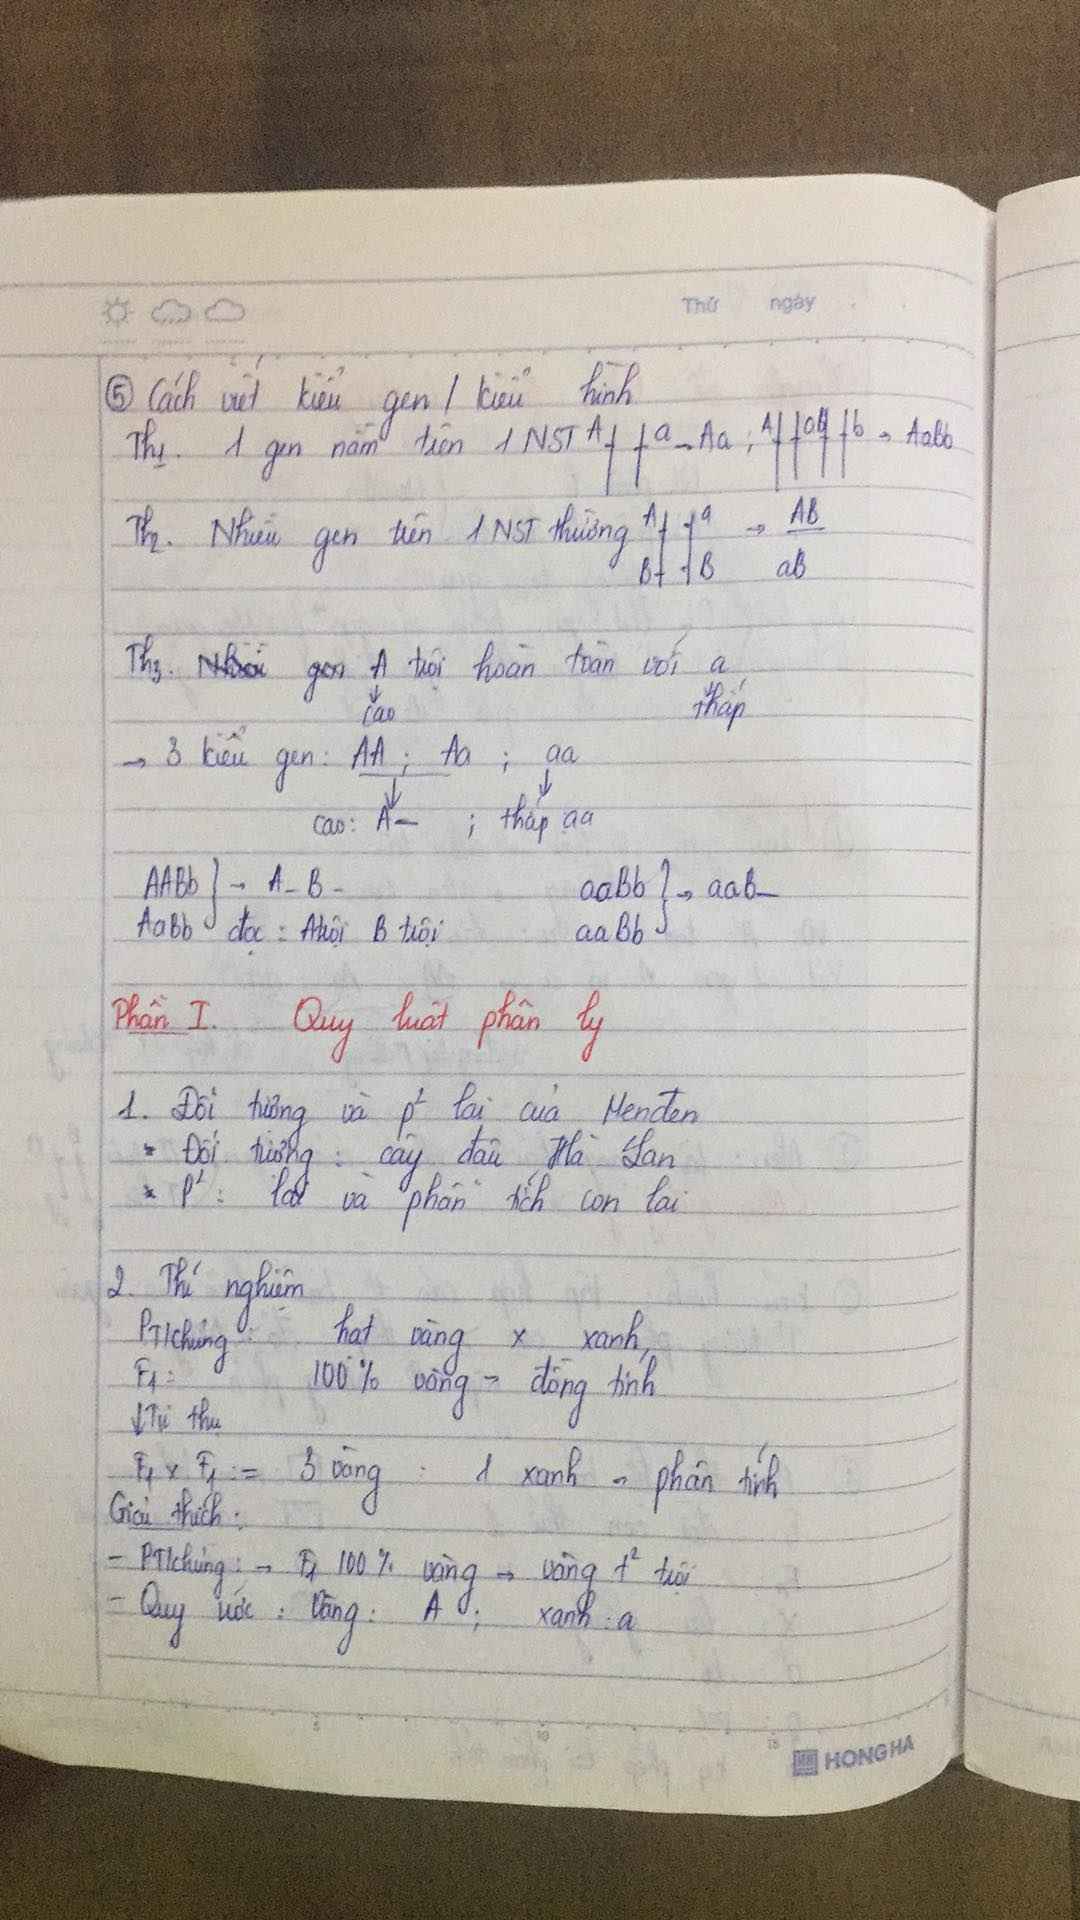 Thứ ngày
⑤ Cách viết kiểu gen / kiểu hình
Th1. 1 gen nằm trên 1 NST A a → Aa ; A a B b → AaBb
Th2. Nhiều gen trên 1 NST thường A a → AB
B B aB
Th3. gen A trội hoàn toàn với a
↓ ↓
cao thấp
→ 3 kiểu gen: AA ; Aa ; aa
↓ ↓
cao: A– ; thấp aa
AABb } → A–B– aaBb } → aaB–
AaBb đọc: A trội B trội aaBb
Phần I. Quy luật phân ly
1. Đối tượng và p² lai của Menđen
* Đối tượng: cây đậu Hà Lan
* P²: lai và phân tích con lai
2. Thí nghiệm
PT/chủng: hạt vàng x xanh
F1: 100% vàng → đồng tính
↓ Tự thụ
F1 x F1 := 3 vàng : 1 xanh → phân tính
Giải thích:
– PT/chủng: → F1 100% vàng → vàng t² trội
– Quy ước: Vàng: A ; xanh: a
5 10 15
HONG HA